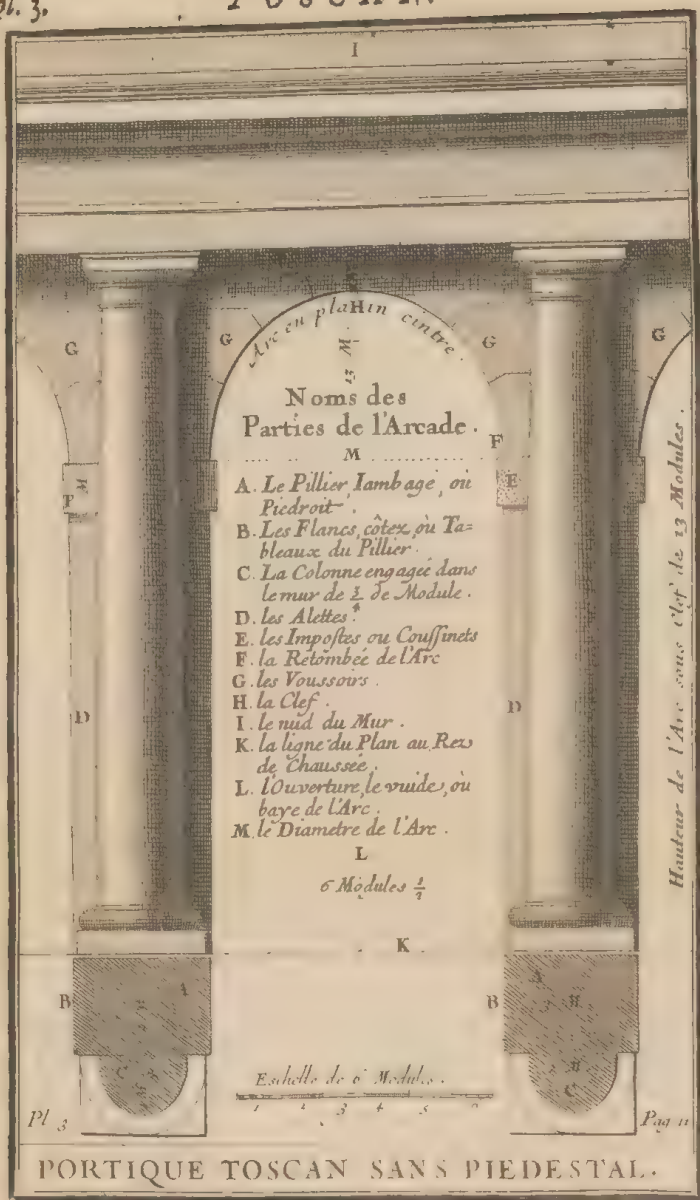 Pl. 3.
TOSCAN.
I
G
G
G
G
Arc en plain cintre.
H
13 M
Noms des
Parties de l'Arcade.
F
M
F
M
E
A. Le Pillier, Iambage, où
Piedroit.
B. Les Flancs, côtez, où Ta=
bleaux du Pillier.
C. La Colonne engageé dans
le mur de 3/4 de Module.
D. les Alettes.
E. les Impostes ou Coussinets
F. la Retombée de l'Arc
G. les Voussoirs.
H. la Clef.
I. le nud du Mur.
K. la ligne du Plan au Rez
de Chaussée.
L. l'Ouverture, le vuide, où
baye de l'Arc.
M. le Diametre de l'Arc.
D
D
L
6 Modules 1/2
Hauteur de l'Arc sous Clef de 13 Modules.
K
A
A
B
B
C
C
Eschelle de 6 Modules.
1 2 3 4 5 6
Pl 3
Pag 11
PORTIQUE TOSCAN SANS PIEDESTAL.